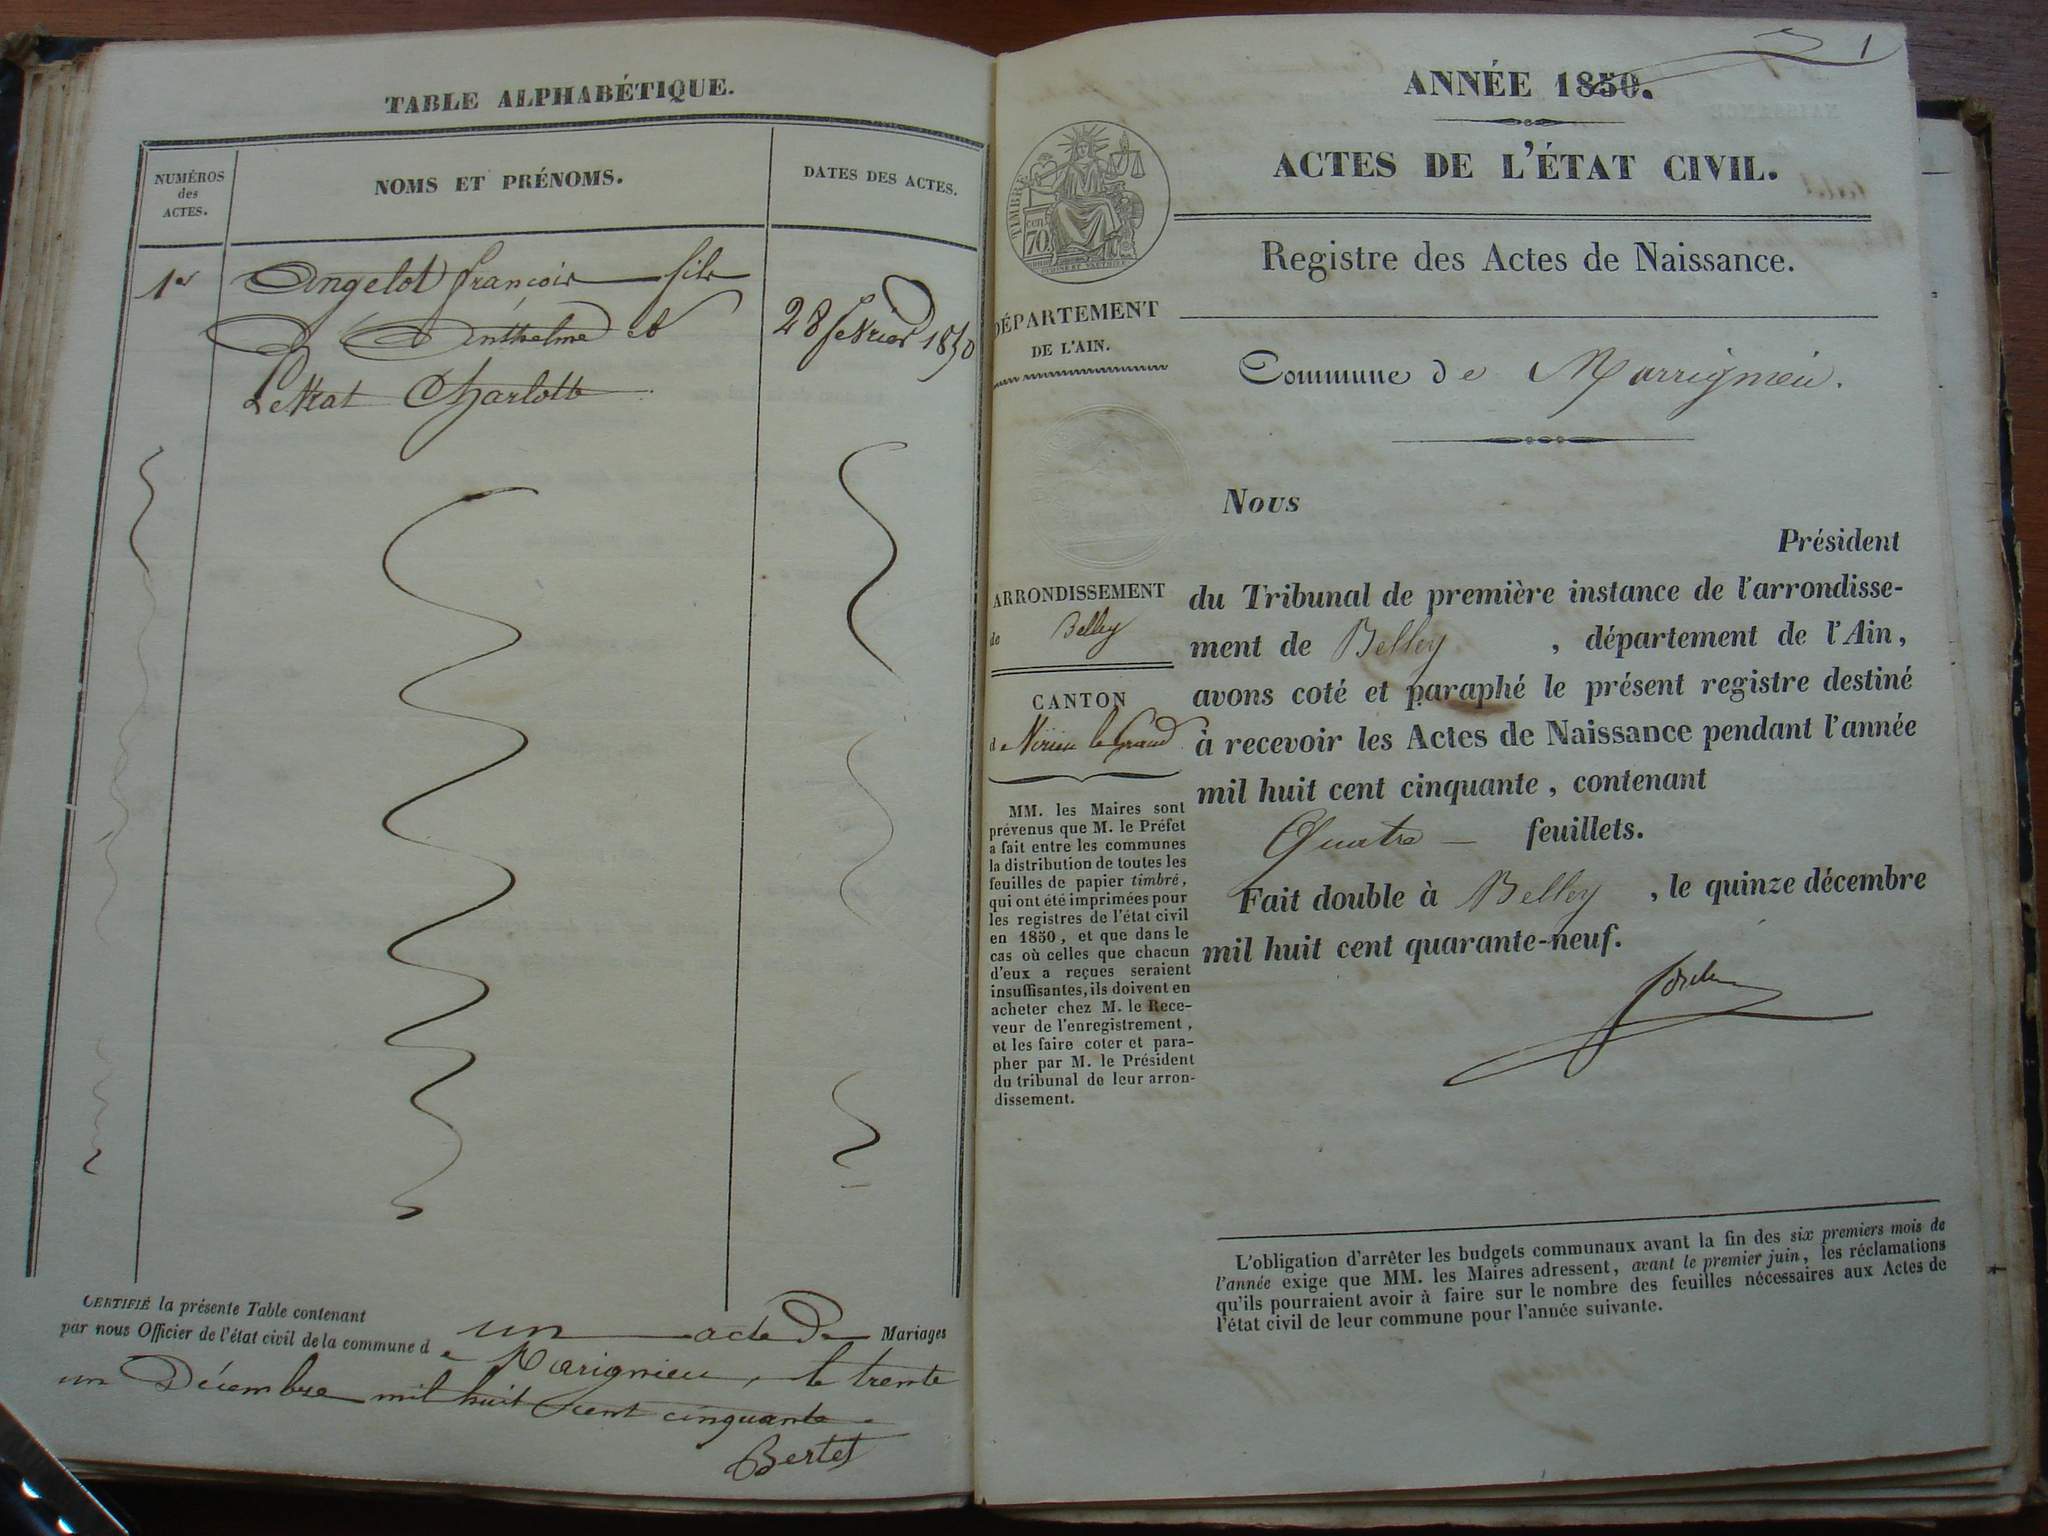 TABLE ALPHABÉTIQUE.
NUMÉROS
des
ACTES.
NOMS ET PRÉNOMS.
DATES DES ACTES.
1er
Angelot françois fils
D'Anthelme et
28 fevrier 1850
Levrat Charlotte
CERTIFIÉ la présente Table contenant un acte De Mariages
par nous Officier de l'état civil de la commune de Marignieu, le trente
un Décembre mil huit cent cinquante.
Bertet
1
ANNÉE 1850.
ACTES DE L'ÉTAT CIVIL.
TIMBRE
CEN
70
Registre des Actes de Naissance.
DÉPARTEMENT
DE L'AIN.
Commune de Marrignieu.
Nous
Président
ARRONDISSEMENT
de Belley
CANTON
de Virieu le Grand
MM. les Maires sont
prévenus que M. le Préfet
a fait entre les communes
la distribution de toutes les
feuilles de papier timbré,
qui ont été imprimées pour
les registres de l'état civil
en 1850, et que dans le
cas où celles que chacun
d'eux a reçues seraient
insuffisantes, ils doivent en
acheter chez M. le Rece-
veur de l'enregistrement,
et les faire coter et para-
pher par M. le Président
du tribunal de leur arron-
dissement.
du Tribunal de première instance de l'arrondisse-
ment de Belley, département de l'Ain,
avons coté et paraphé le présent registre destiné
à recevoir les Actes de Naissance pendant l'année
mil huit cent cinquante, contenant
Quatre feuillets.
Fait double à Belley, le quinze décembre
mil huit cent quarante-neuf.
L'obligation d'arrêter les budgets communaux avant la fin des six premiers mois de
l'année exige que MM. les Maires adressent, avant le premier juin, les réclamations
qu'ils pourraient avoir à faire sur le nombre des feuilles nécessaires aux Actes de
l'état civil de leur commune pour l'année suivante.